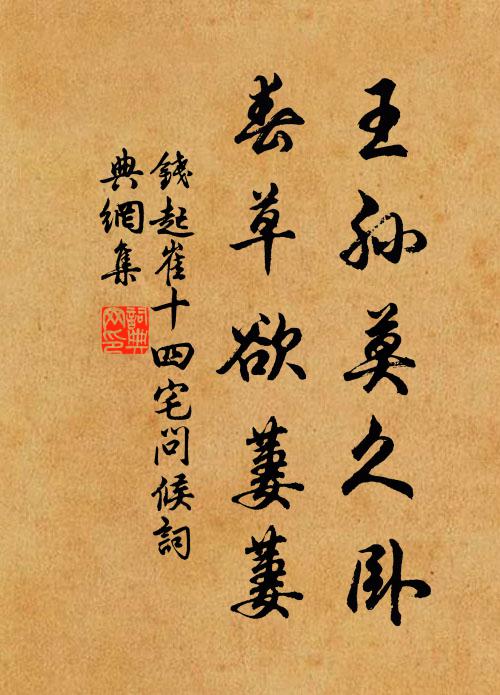 王孙莫久卧
春草欲萋萋
錢起崔十四宅問候詞
典網集
詞典
网印